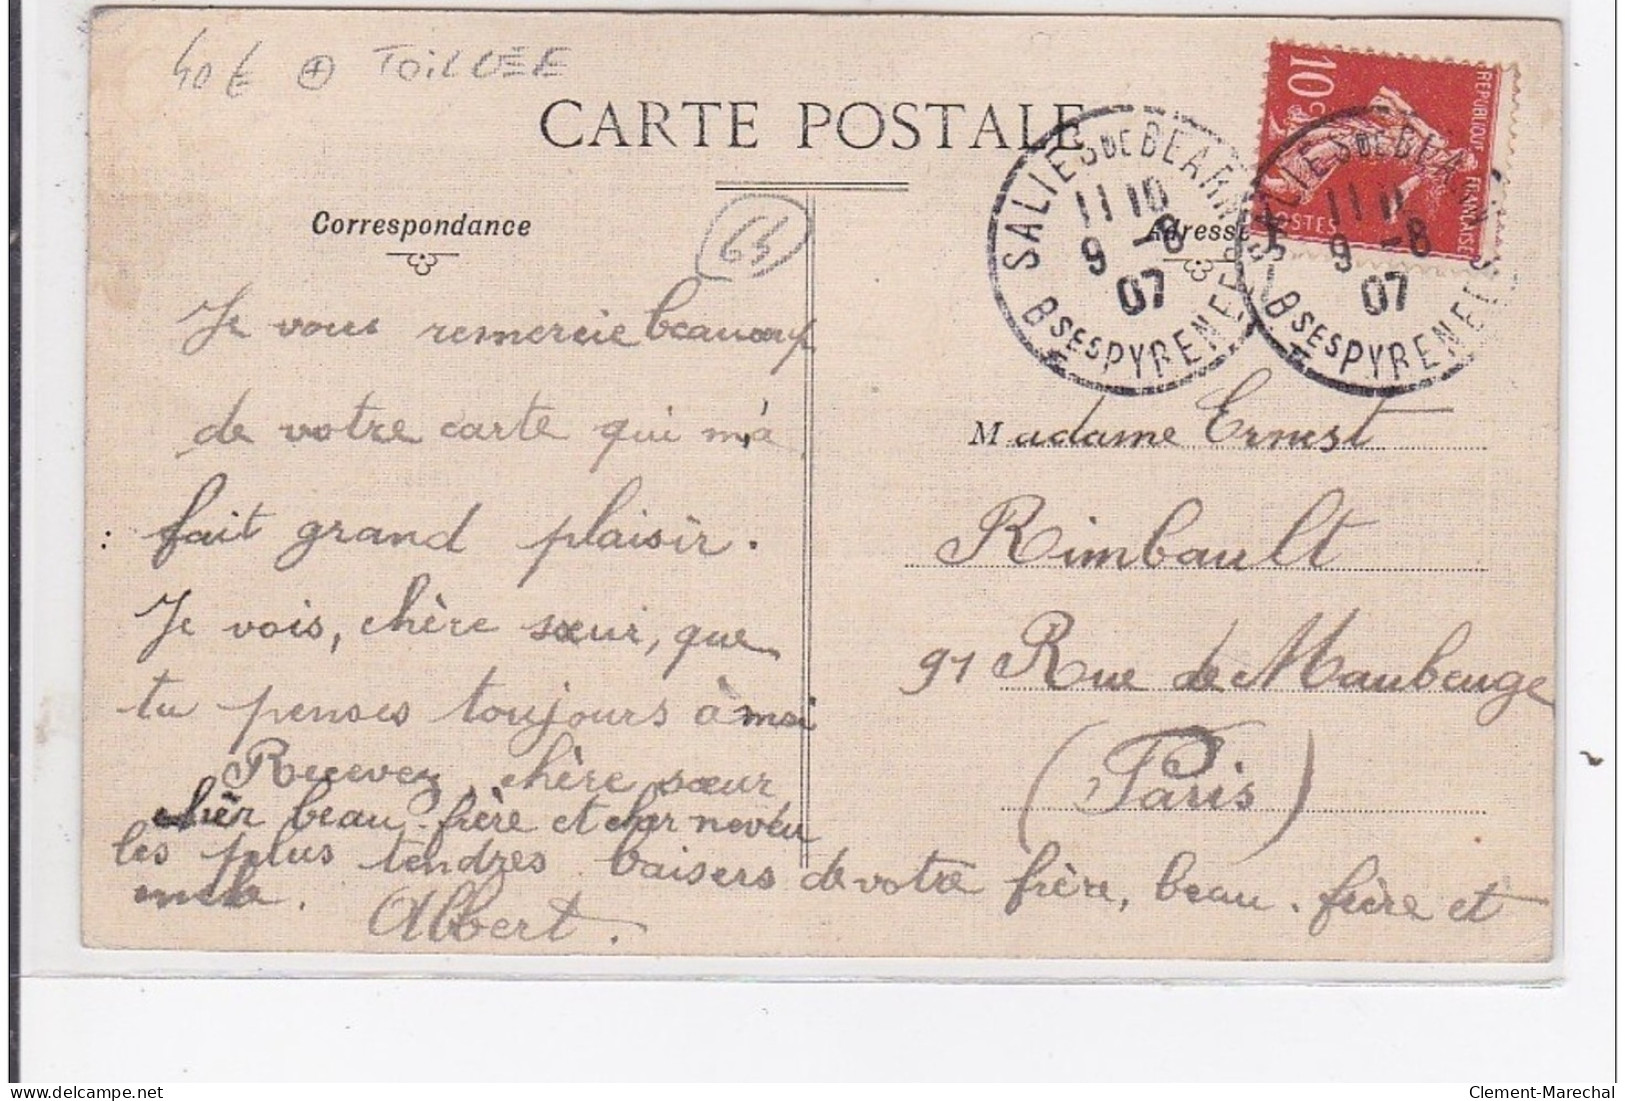 40€ + TOILLÉE
CARTE POSTALE
Correspondance
64
Adresse
10c
REPUBLIQUE FRANÇAISE
POSTES
SALIES DE BEARN
11 10
9 -8
07
BSES PYRENEES
SALIES DE BEARN
11 11
9 -8
07
BSES PYRENEES
Je vous remercie beaucoup
de votre carte qui m'a
fait grand plaisir.
Je vois, chère sœur, que
tu penses toujours à moi
Recevez, chère sœur
cher beau-frère et cher neveu
les plus tendres baisers de votre frère, beau-frère et
Albert.
Madame Ernest
Rimbault
91 Rue de Maubeuge
(Paris)
delcampe.net
Clement-Marechal